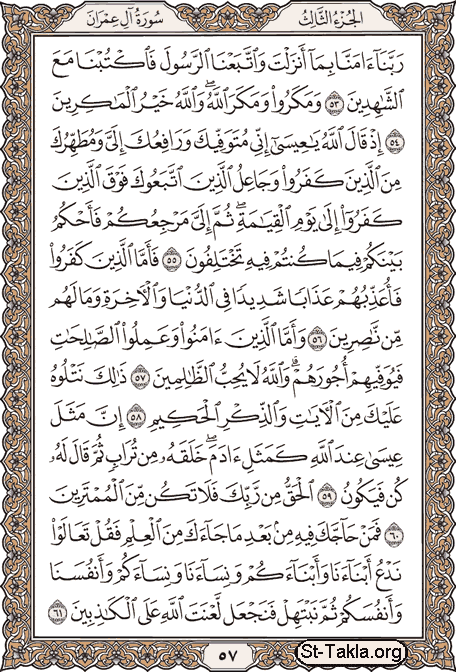 الجزء الثالث
سورة آل عمران
رَبَّنَا ءَامَنَّا بِمَا أَنزَلْتَ وَاتَّبَعْنَا الرَّسُولَ فَاكْتُبْنَا مَعَ
الشَّاهِدِينَ ۝٥٣ وَمَكَرُوا وَمَكَرَ اللَّهُ ۖ وَاللَّهُ خَيْرُ الْمَاكِرِينَ
۝٥٤ إِذْ قَالَ اللَّهُ يَاعِيسَىٰ إِنِّي مُتَوَفِّيكَ وَرَافِعُكَ إِلَيَّ وَمُطَهِّرُكَ
مِنَ الَّذِينَ كَفَرُوا وَجَاعِلُ الَّذِينَ اتَّبَعُوكَ فَوْقَ الَّذِينَ
كَفَرُوا إِلَىٰ يَوْمِ الْقِيَامَةِ ۖ ثُمَّ إِلَيَّ مَرْجِعُكُمْ فَأَحْكُمُ
بَيْنَكُمْ فِيمَا كُنتُمْ فِيهِ تَخْتَلِفُونَ ۝٥٥ فَأَمَّا الَّذِينَ كَفَرُوا
فَأُعَذِّبُهُمْ عَذَابًا شَدِيدًا فِي الدُّنْيَا وَالْآخِرَةِ وَمَا لَهُم
مِّن نَّاصِرِينَ ۝٥٦ وَأَمَّا الَّذِينَ ءَامَنُوا وَعَمِلُوا الصَّالِحَاتِ
فَيُوَفِّيهِمْ أُجُورَهُمْ ۗ وَاللَّهُ لَا يُحِبُّ الظَّالِمِينَ ۝٥٧ ذَٰلِكَ نَتْلُوهُ
عَلَيْكَ مِنَ الْآيَاتِ وَالذِّكْرِ الْحَكِيمِ ۝٥٨ إِنَّ مَثَلَ
عِيسَىٰ عِندَ اللَّهِ كَمَثَلِ ءَادَمَ ۖ خَلَقَهُ مِن تُرَابٍ ثُمَّ قَالَ لَهُ
كُن فَيَكُونُ ۝٥٩ الْحَقُّ مِن رَّبِّكَ فَلَا تَكُن مِّنَ الْمُمْتَرِينَ
۝٦٠ فَمَنْ حَاجَّكَ فِيهِ مِن بَعْدِ مَا جَاءَكَ مِنَ الْعِلْمِ فَقُلْ تَعَالَوْا
نَدْعُ أَبْنَاءَنَا وَأَبْنَاءَكُمْ وَنِسَاءَنَا وَنِسَاءَكُمْ وَأَنفُسَنَا
وَأَنفُسَكُمْ ثُمَّ نَبْتَهِلْ فَنَجْعَل لَّعْنَتَ اللَّهِ عَلَى الْكَاذِبِينَ ۝٦١
٥٧
St-Takla.org